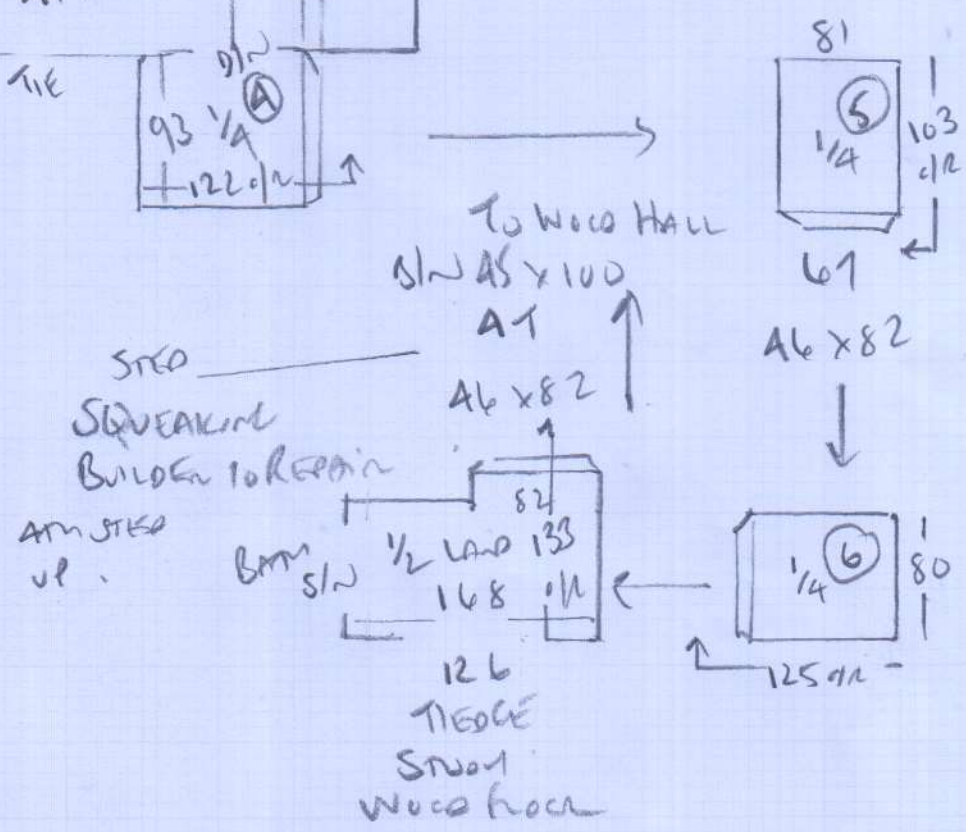 TIE
D/N
A
93 1/4
122 O/R
81
5
1/4
103
O/R
61
TO WOOD HALL
D/N 45 X 100
46 X 82
46 X 82
STEP
SQUEAKING
BUILDER TO REPAIR
4TH STEP
UP.
82
1/2 LAND 133
168 O/R
S/N
126
STUDY
WOOD FLOOR
6
1/4
80
125 O/R